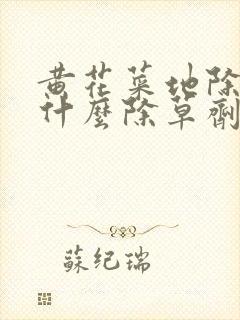 黄花菜地除
什麼除草劑
蘇紀瑞